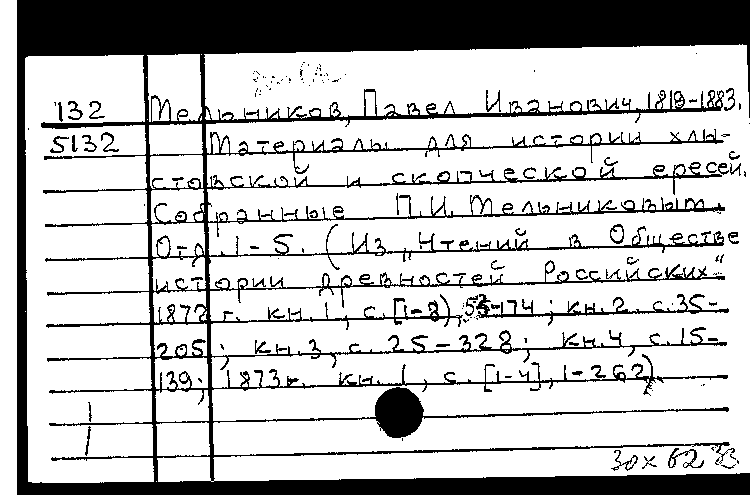 132 Мельников, Павел Иванович, 1819-1883.
5132 Материалы для истории хлы-
стовской и скопческой ересей.
Собранные П.И. Мельниковым.
Отд. 1-5. (Из „Чтений в Обществе
истории древностей Российских"
1872 г. кн. 1, с. [1-8), 53-174; кн. 2. с. 35-
205; кн. 3, с. 25-328; кн. 4, с. 15-
139; 1873 г. кн. 1, с. [1-4], 1-262)